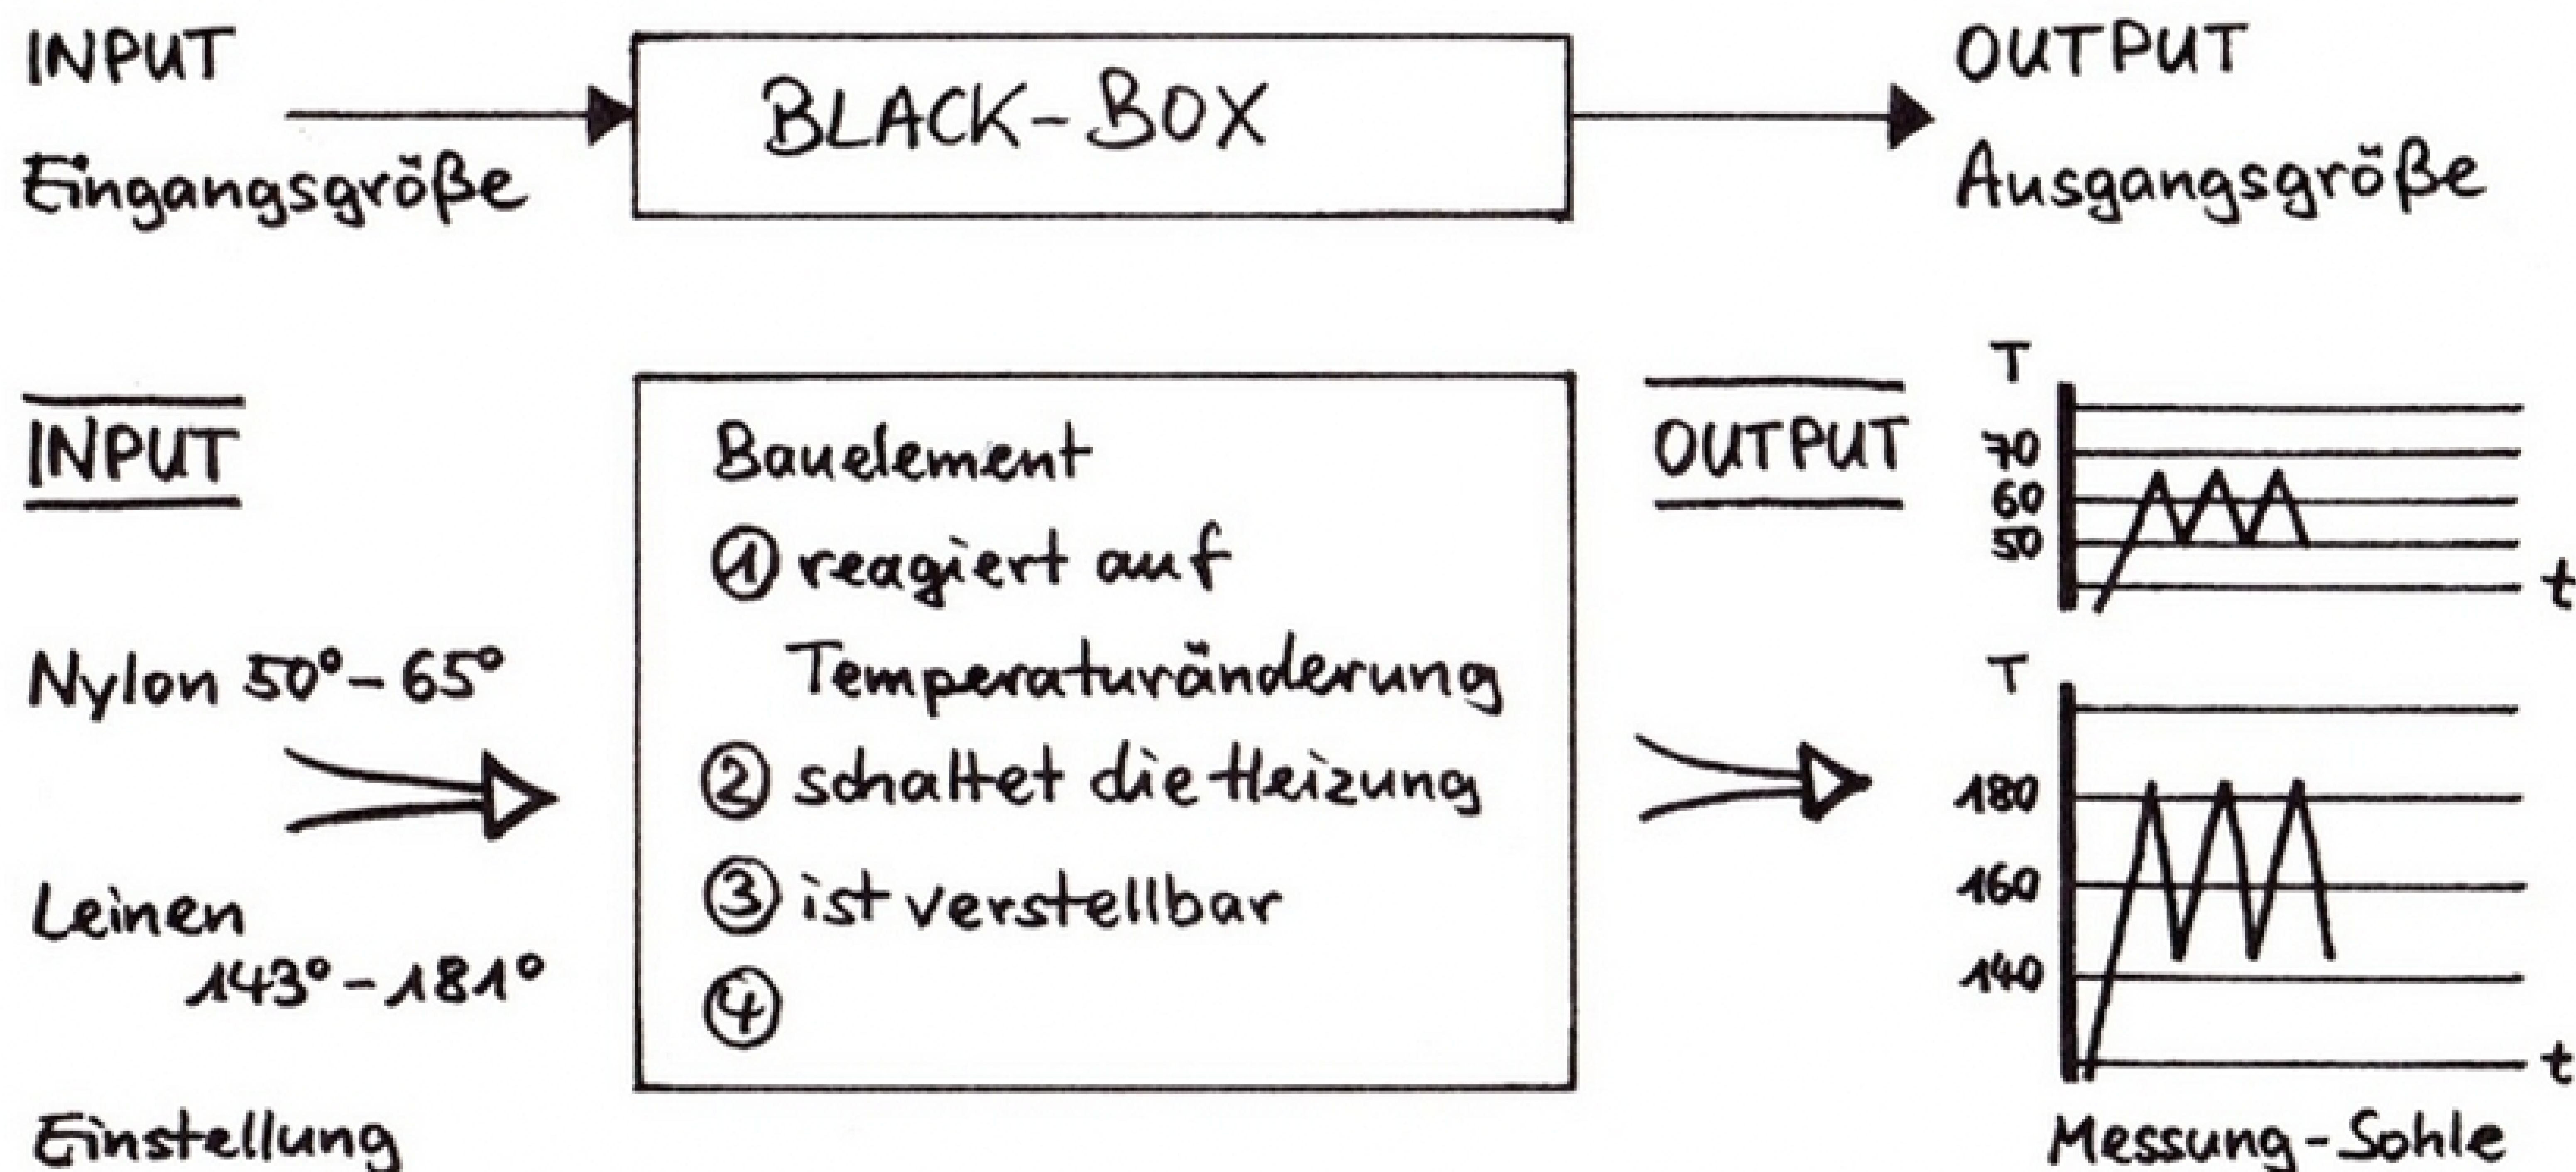 INPUT
Eingangsgröße
BLACK-BOX
OUTPUT
Ausgangsgröße
INPUT
Nylon 50°-65°
Leinen
143°-181°
Einstellung
Bauelement
① reagiert auf
Temperaturänderung
② schaltet die Heizung
③ ist verstellbar
④
OUTPUT
T
70
60
50
t
T
180
160
140
t
Messung-Sohle